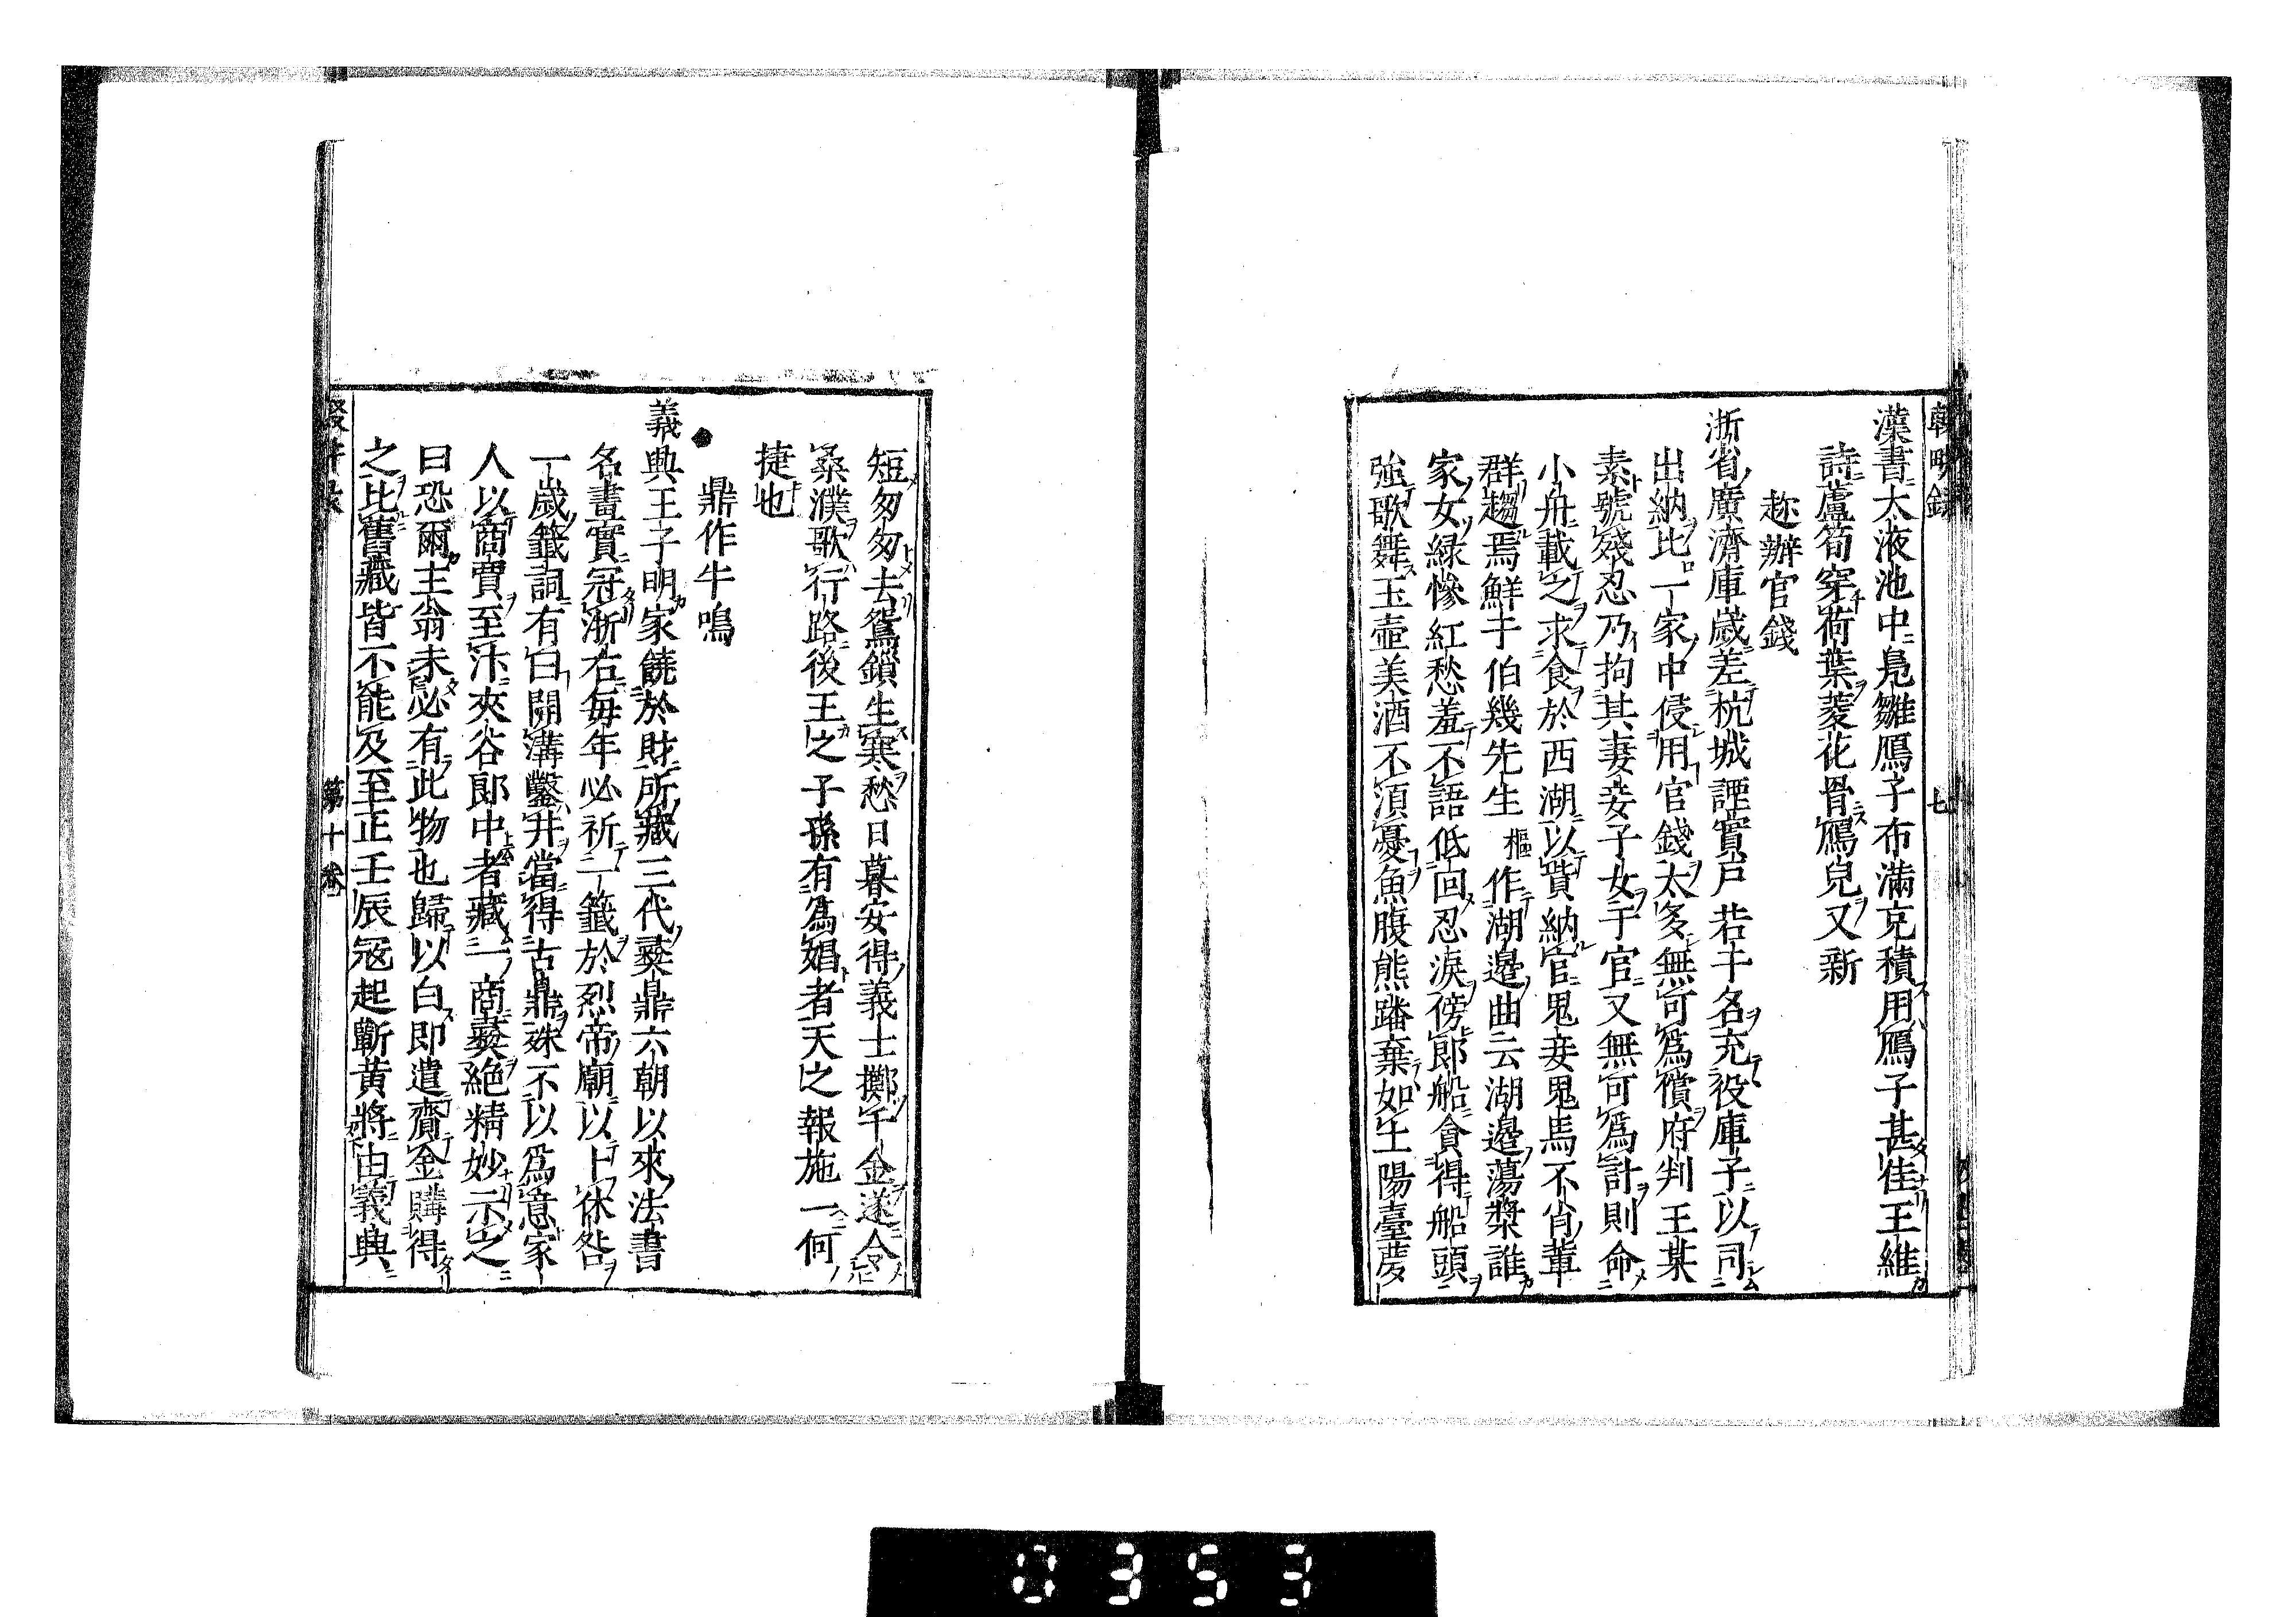 漢書太液池中鳧雛鴈子布滿充積用鴈子甚佳王維
詩蘆筍穿荷葉菱花罥鴈兒又新
趂辦官錢
浙省廣濟庫歲差杭城誆實戸若干名充役庫子以司
出納比一家中侵用官錢太多無可爲償府判王某
素號殘忍乃拘其妻妾子女于官又無可爲計則命
小舟載之求食於西湖以貲納官鬼妾鬼馬不肖輩
群趨焉鮮于伯幾先生樞作湖邊曲云湖邊蕩槳誰
家女綠慘紅愁羞不語低回忍淚傍郎船貪得船頭
強歌舞玉壺美酒不須憂魚腹熊蹯棄如土陽臺夢
短匆匆去鴛鎖生寒愁日暮安得義士擲千金遂令
桑濮歌行路後王之子孫有爲娼者天之報施一何
捷也
鼎作牛鳴
義興王子明家饒於財所藏三代彝鼎六朝以來法書
名畫實冠浙右每年必祈一籤於烈帝廟以卜休咎
一歲籤詞有曰開溝鑿井當得古鼎殊不以爲意家
人以商賈至汴夾谷郎中者藏一商彝絶精妙示之
曰恐爾主翁未必有此物也歸以白即遣齎金購得
之比舊藏皆不能及至正壬辰冦起蘄黄將由義興
第十卷
七
0353